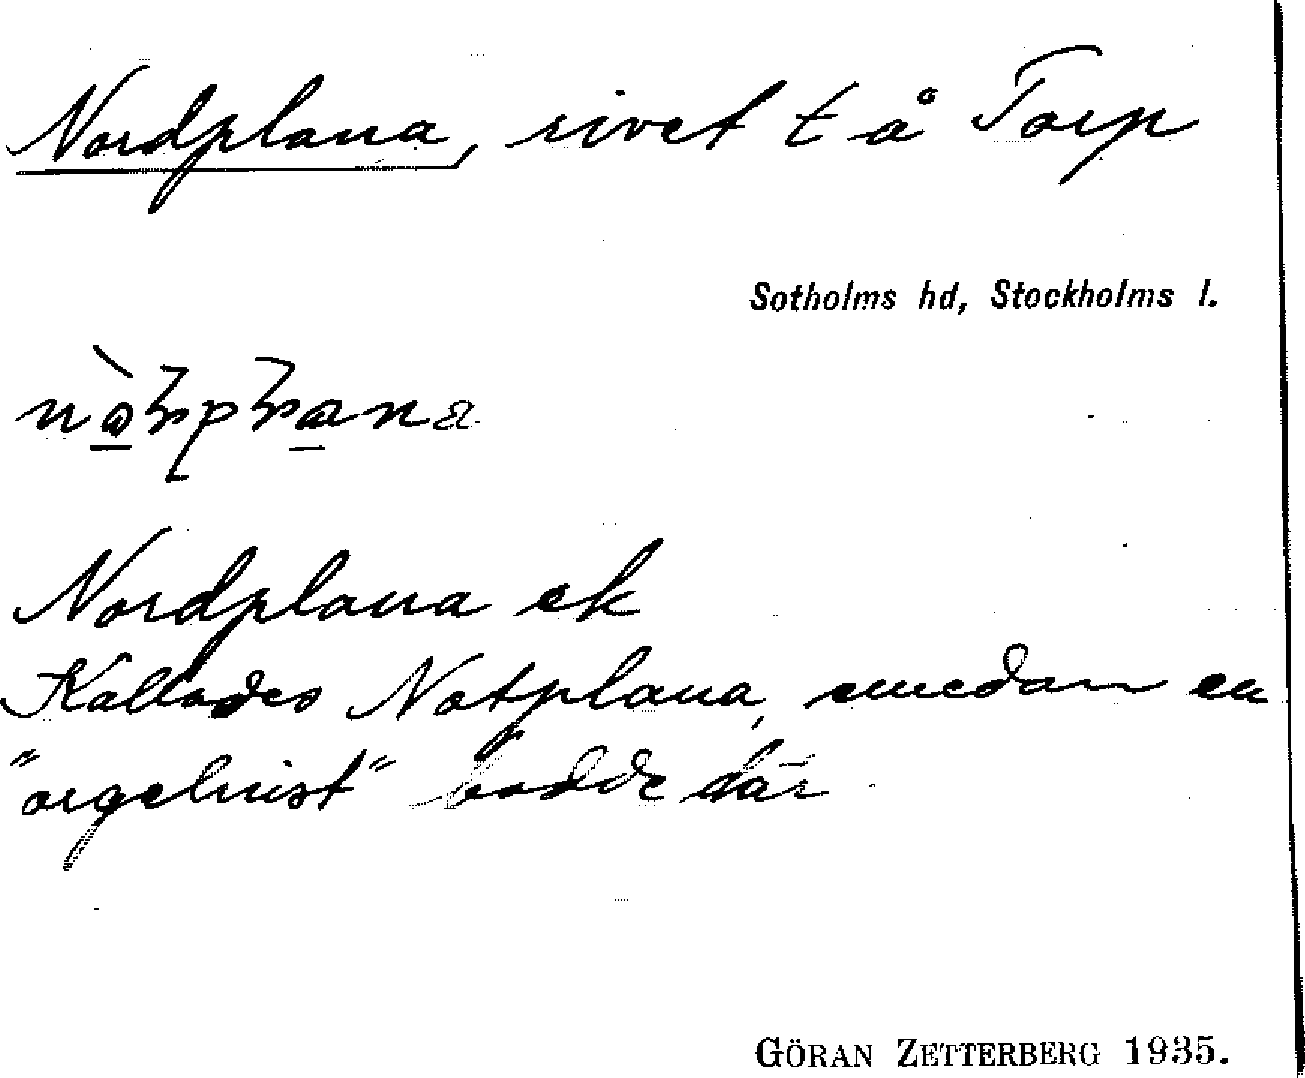 Nordplana, rivet t å Torp
Sotholms hd, Stockholms l.
Nordplana ek
Kallades Notplana, emedan en
"orgelnist" bodde där
GÖRAN ZETTERBERG 1935.